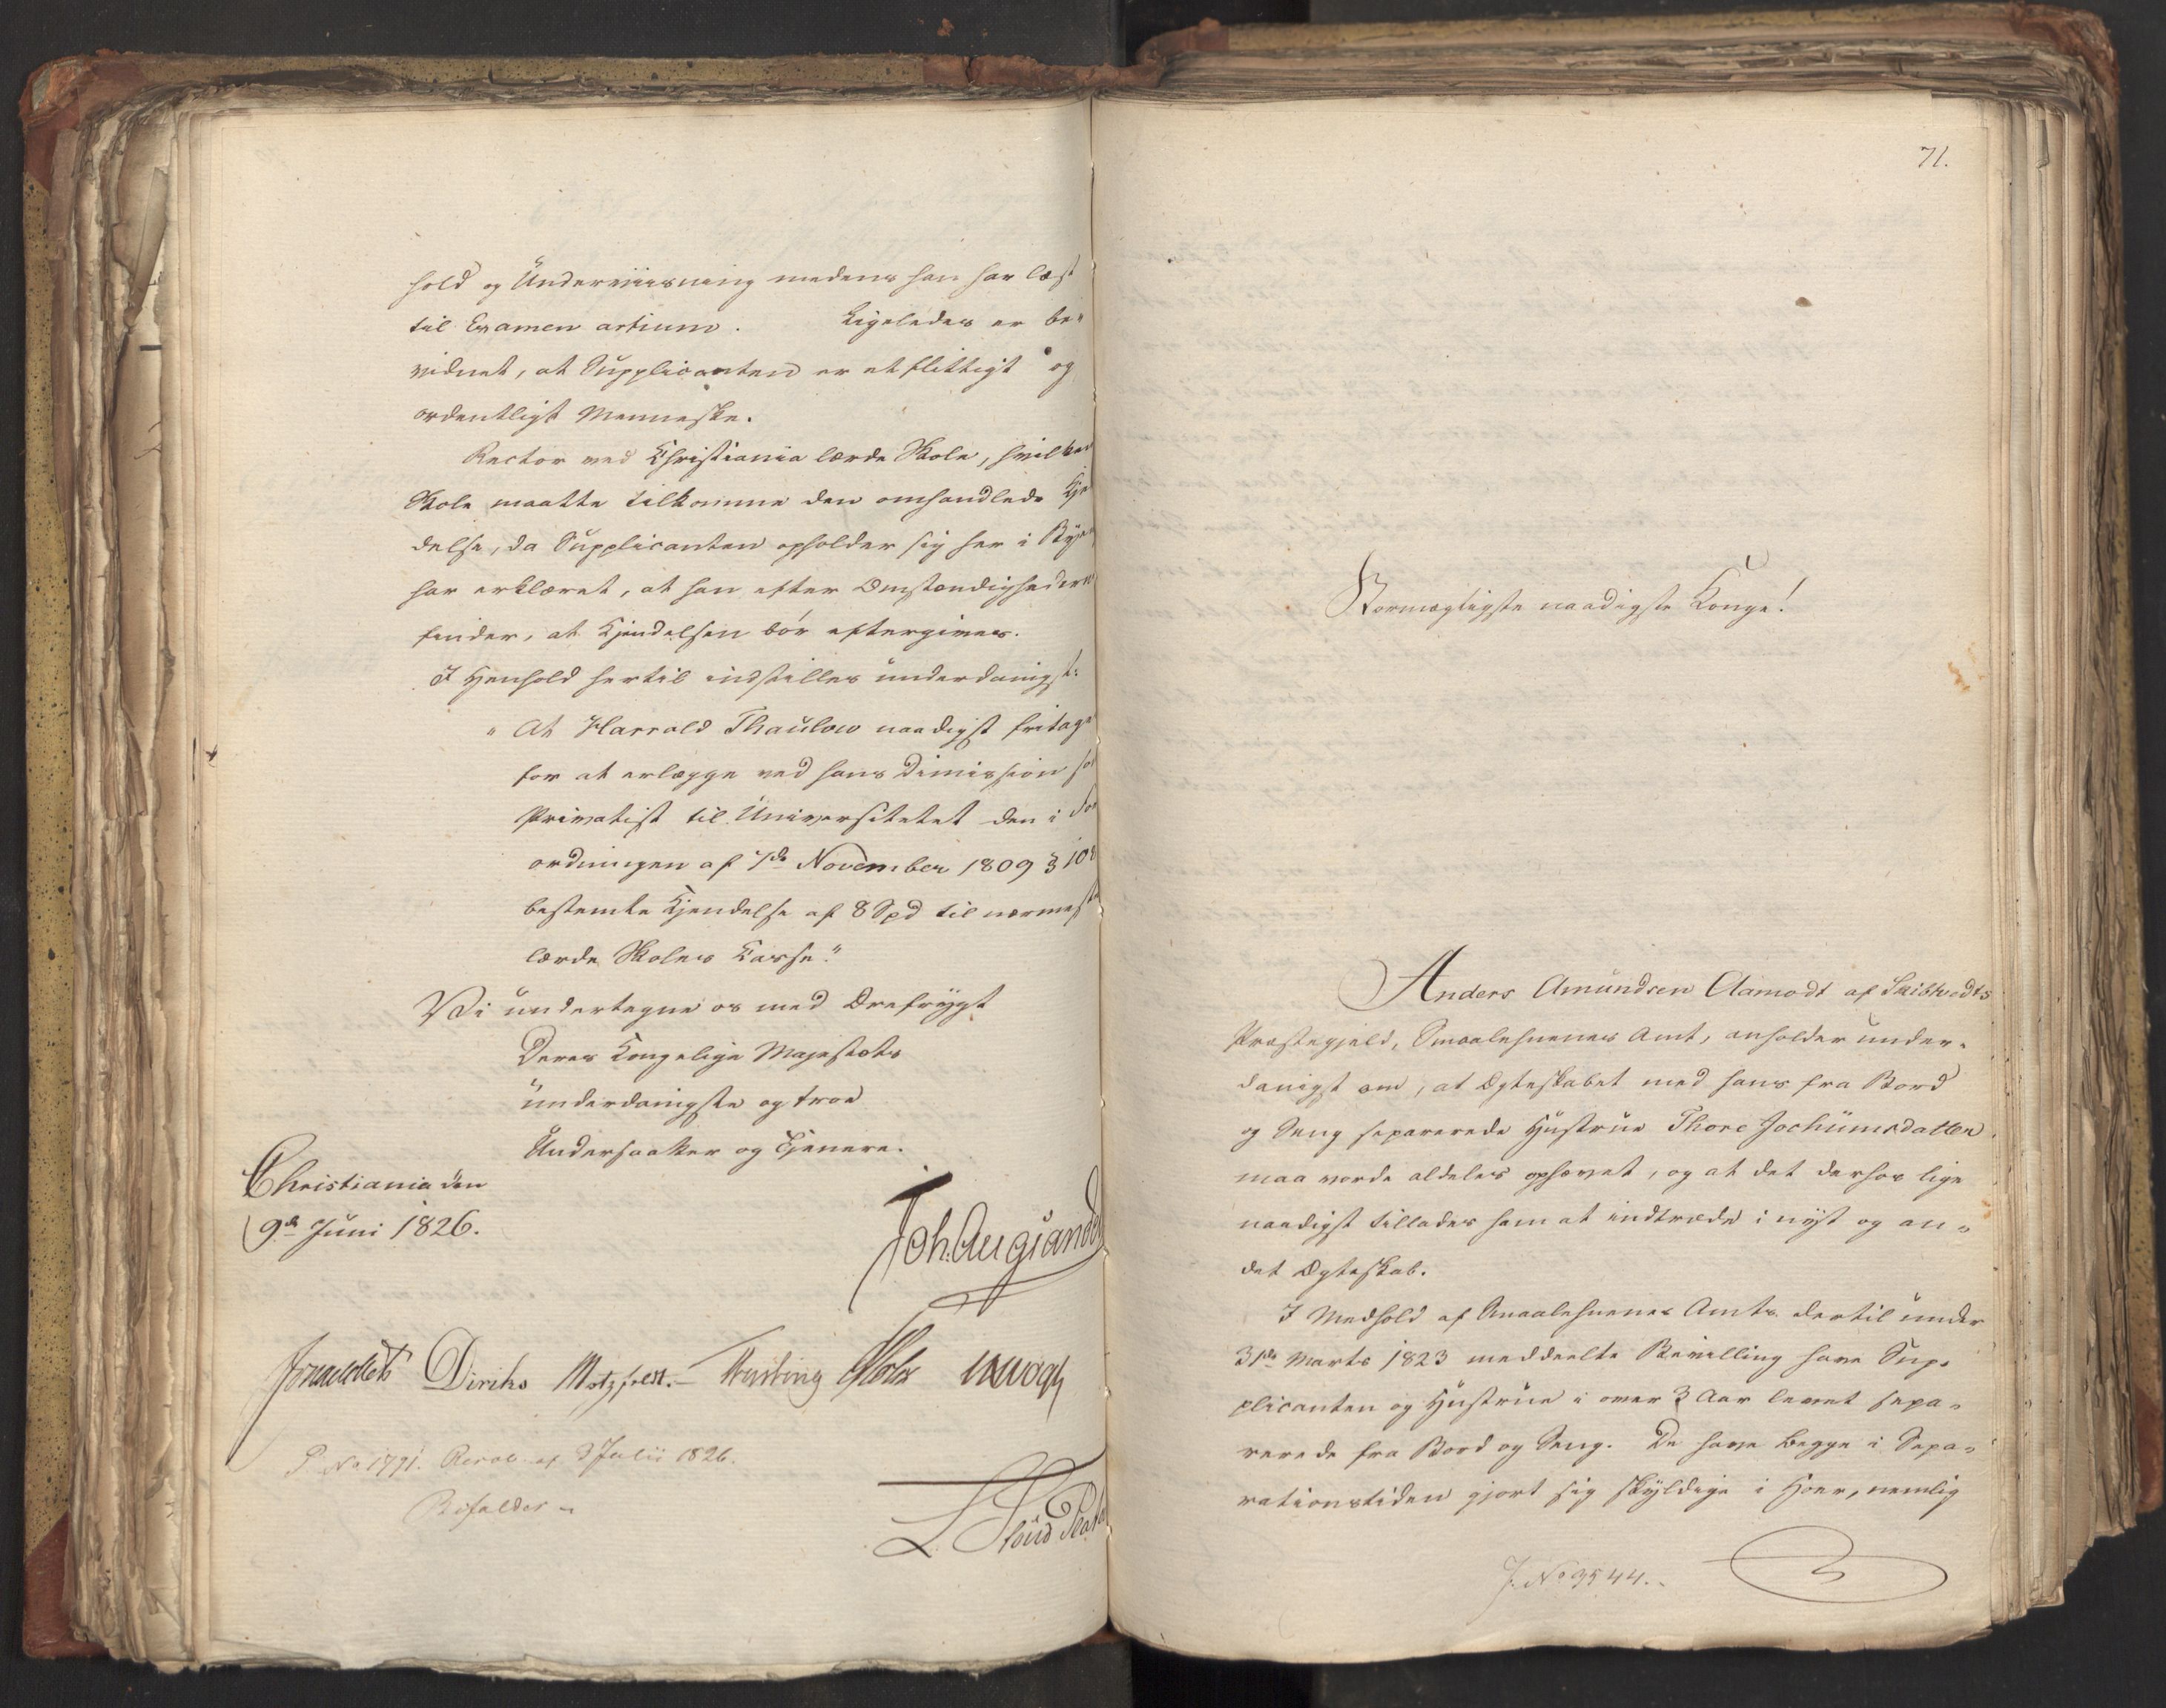 hold og Underviisning medens han har læst
til Examen artium. Ligeledes er be-
vidnet, at Supplicanten er et flittigt og
ordentligt Menneske.
Rector ved Christiania lærde Skole, hvilken
Skole maatte tilkomme den omhandlede Kjen
delse, da Supplicanten opholder sig her i Byen
har erklæret, at han efter Omstændighederne
finder, at Kjendelsen bør eftergives.
I Henhold hertil indstilles underdanigst:
"At Harrald Thaulow naadigst fritages
for at erlægge ved hans Dimission som
Privatist til Universitetet den i For
ordningen af 7de November 1809 § 108
bestemte Kjendelse af 8 Spd til nærmeste
lærde Skoles Casse."
Vi undertegne os med Ærefrygt
Deres Kongelige Majestæts
underdanigste og troe
Undersaatter og Tjenere.
Christiania den
9de Juni 1826.
Joh. Aug Sandels
Jonas Collett Diriks Motzfeldt. Treschow Holst
P. No 1791. Resol. af 3 Julii 1826.
Bifaldes
L Stoud Platou
71.
Stormægtigste naadigste Konge!
Anders Amundsen Aamodt af Skibtvedts
Præstegjeld, Smaalehnenes Amt, anholder under-
danigst om, at Ægteskabet med hans fra Bord
og Seng separerede Hustrue Thore Jochumsdatter
maa vorde aldeles ophævet, og at det derhos lige
naadigst tillades ham at indtræde i nyt og an-
det Ægteskab.
I Medhold af Smaalehnenes Amts dertil under
31de Marts 1823 meddeelte Bevilling have Sup-
plicanten og Hustrue i over 3 Aar levet sepa-
rerede fra Bord og Seng. De have begge i Sepa-
rationstiden gjort sig skyldige i Hoer, nemlig
J. No 3544.